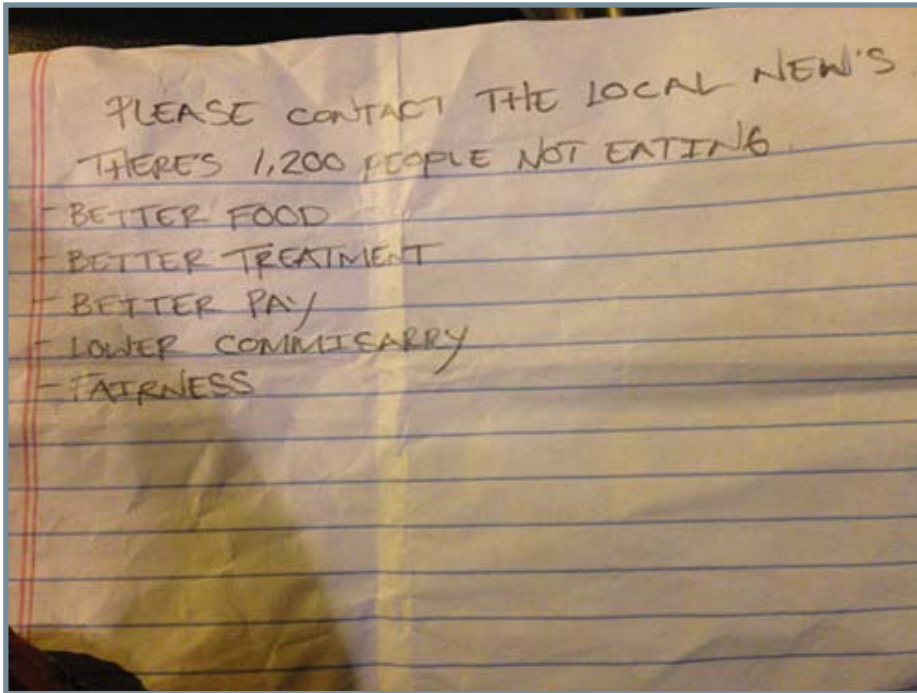 PLEASE CONTACT THE LOCAL NEW'S
THERE'S 1,200 PEOPLE NOT EATING.
- BETTER FOOD
- BETTER TREATMENT
- BETTER PAY
- LOWER COMMISARRY
- FAIRNESS